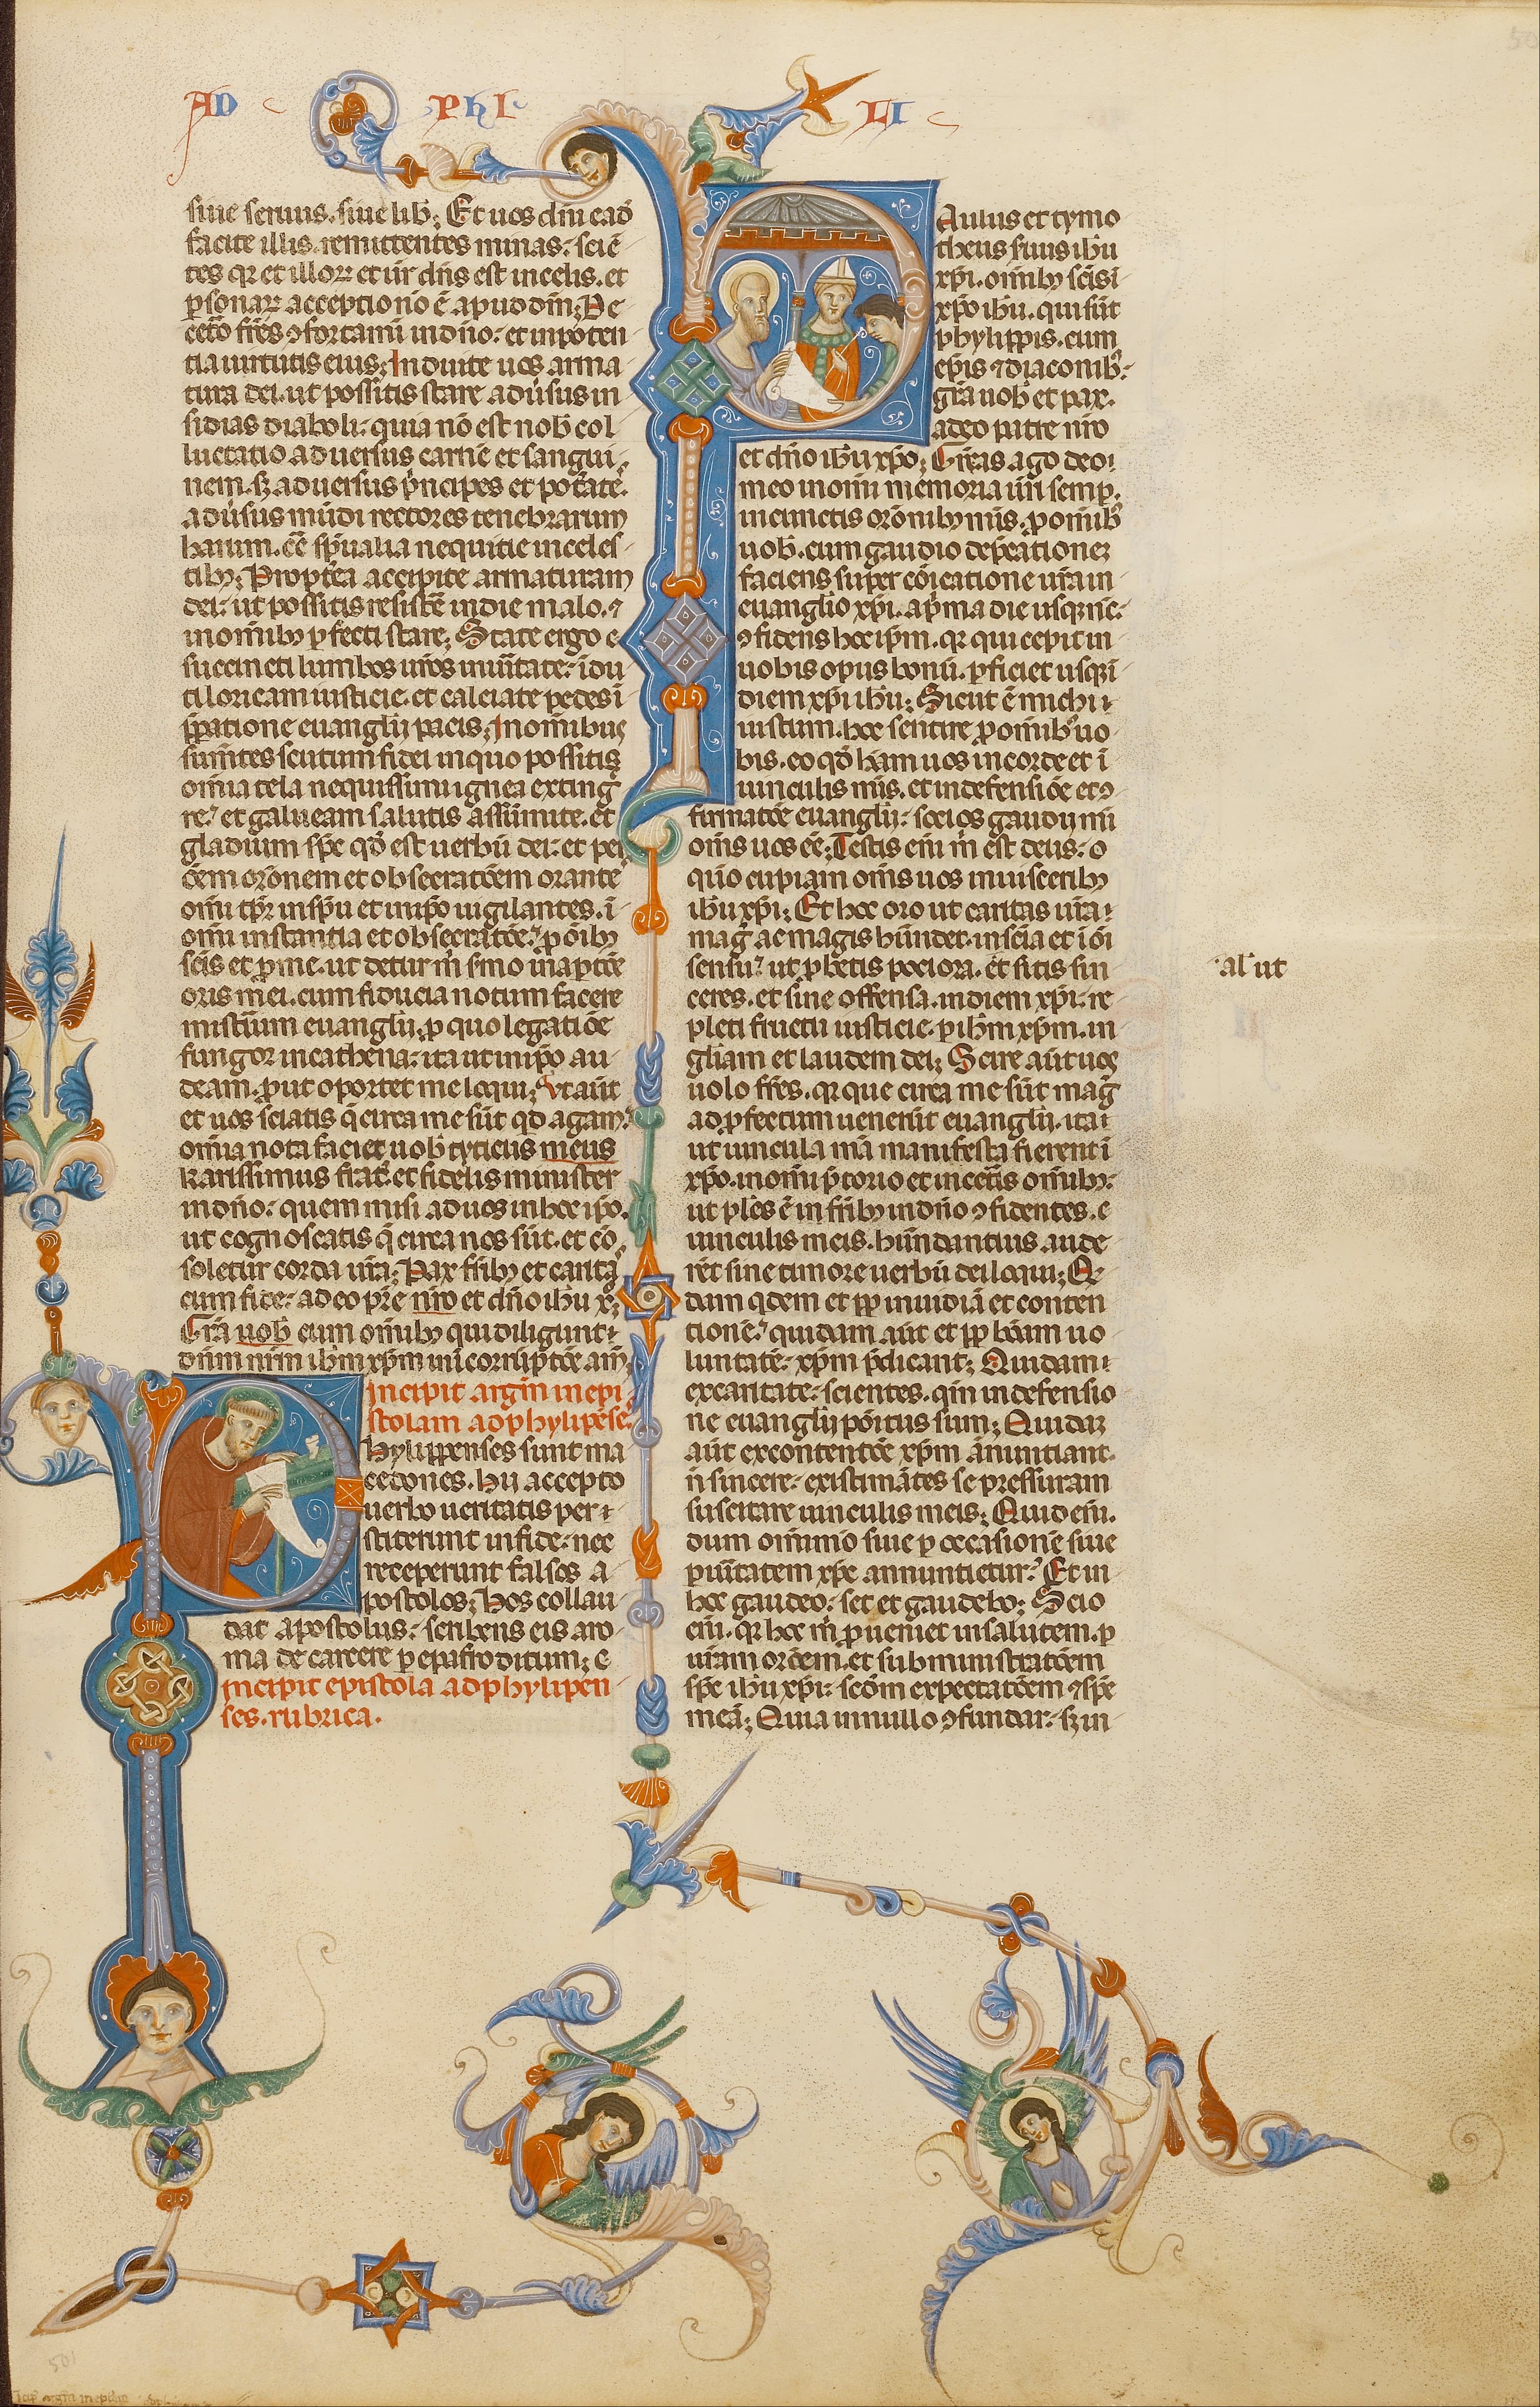 AD PhI LI
siue seruus. siue lib̄; Et uos dn̄i eadē
facite illis. remittentes minas: sciē
tes qr et illorꝝ et ūr dn̄s est in celis. et
ꝑsonarꝝ acceptio nō ē apud dm̄; De
cet͛o fr̄es ꝯfortamī in dn̄o: et in poten
tia uirtutis eius; Induite uos arma
tura dei. ut possitis stare adūsus in
sidias diaboli: quia nō est nob̄ col
luctatio aduersus carnē et sangui
nem. sꝫ aduersus p̄ncipes et potātē.
adūsus mūdi rectores tenebrarum
harum. cē sp̄ualia nequitie in celes
tibꝫ; Propt̄ea accipite armaturam
dei: ut possitis resist͛e in die malo. ⁊
in om̄ibꝫ ꝑfecti stare; State ergo e
succincti lumbos ur̄os in uīitate: īdu
ti loricam iusticie. et calciate pedes ī
p̄patione euanglīj pacis; In om̄ibus
sum̄tes scutum fidei in quo possitis
om̄ia tela nequissimi ignea exting
re: et galueam salutis assūmite. et
gladium sp̄c qd̄ est uerbū dei: et per
ōem orōnem et obsecratōem orante
om̄i tp̄r in sp̄u et in ip̄o uigilantes. ī
om̄i instantia et obsecratōe: ꝑ ōibꝫ
scīs et ꝑ me. ut detur m̄ smo in aptōe
oris mei. cum fiducia notum facere
mist̄ium euanglīj. ꝑ quo legatiōe
fungor in cathena: ita ut in ip̄o au
deam. ꝓut oportet me loqui; Vt aūt
et uos sciatis q̄ circa me sūt qd agam:
om̄ia nota faciet uob̄ tyticus meus
karissimus frat͛. et fidelis minister
in dn̄o: quem misi ad uos in hoc ip̄o.
ut cognoscatis q̄ circa nos sūt. et cō
soletur corda ur̄a; Pax fr̄ibꝫ et carita
cum fide: a deo pr̄e nr̄o et dn̄o ih̄u x̄;
Gr̄a uob̄ cum om̄ibꝫ qui diligunt
dn̄m nr̄m ih̄m xp̄m in īcorruptōe am̄.
Incipit argm̄ in epi
stolam ad phylipēse.
Phylippenses sunt ma
cedones. hij accepto
uerbo ueritatis per
stiterunt in fide: nec
receperunt falsos a
postolos; Hos collau
dat apostolus: scribens eis a ro
ma de carcere ꝑ epafroditum; e
Incipit epistola ad phylipen
ses. rubrica.
PAulus et tymo
theus serui ih̄u
xp̄i. om̄ibꝫ scīs ī
xp̄o ih̄u. qui sūt
phylippis. cum
ep̄is ⁊ diaconib͛:
gr̄a uob̄ et pax.
a deo patre nr̄o
et dn̄o ih̄u xp̄o; Gr̄as ago deo
meo in om̄i memoria ūri semp.
in cunctis orōnibꝫ mīs. ꝑ om̄ib͛
uob̄. cum gaudio dep̄cationeꝫ
faciens super cōicatione ur̄a in
euanglio xp̄i. a pͥma die usqꝫ nūc:
ꝯfidens hoc ip̄m. qr qui cepit in
uobis opus bonū. ꝑficiet usqꝫ ī
diem xp̄i ih̄u; Sicut ē michi
iustum. hoc sentire ꝑ om̄ib͛ uo
bis. eo qd̄ h̄am uos in corde et ī
uinculis mīs. et in defensiōe et ꝯ
firmatōe euanglīj: socios gaudij mī
om̄s uos eē; Testis eī m̄ est deus: o
quō cupiam om̄s uos in uiscerībꝫ
ih̄u xp̄i; Et hoc oro ut caritas ur̄a
mag̃ ac magis hūndet. in scīa et ī oī
sensu: ut ꝓbetis pociora. et sitis sin
ceres. et sine offensa. in diem xp̄i: re
pleti fructu iusticie. ꝑ ih̄m xp̄m. in
glīam et laudem dei; Scire aūt uos
uolo fr̄es. qr que circa me sūt mag̃
ad ꝓfectum uenerūt euanglīj. ita
ut uincula m̄a manifesta fierent ī
xp̄o. in om̄i p̄torio et in cet͛is om̄ibꝫ:
ut pl̄es ē fr̄ibꝫ in dn̄o ꝯfidentes. e
uinculis meis. hūndantius aude
rēt sine timore uerbū dei loqui; Q
dam qdem et ꝓp inuidiā et conten
tionē: quidam aūt et ꝓp bōam uo
luntatē: xp̄m p̄dicant; Quidam
ex caritate: scientes. qm̄ in defensio
ne euanglīj pōitus sum; Quidaꝫ
aūt ex contentōe xp̄m ānuntiant.
n̄ sincere: existimātes se pressuram
suscitare uinculis meis; Quid eī.
dum om̄imō siue ꝑ occasionē siue
ꝑ uītatem xp̄c annuntietur: Et in
hoc gaudeo: set et gaudebo; Scio
eī. qr hoc m̄ ꝓueniet in salutem. ꝑ
ur̄am orōem. et subministratōem
sp̄c ih̄u xp̄i: scōm expectatōem ⁊ spē
meā; Quia in nullo ꝯfundar: sꝫ in
al ut
501